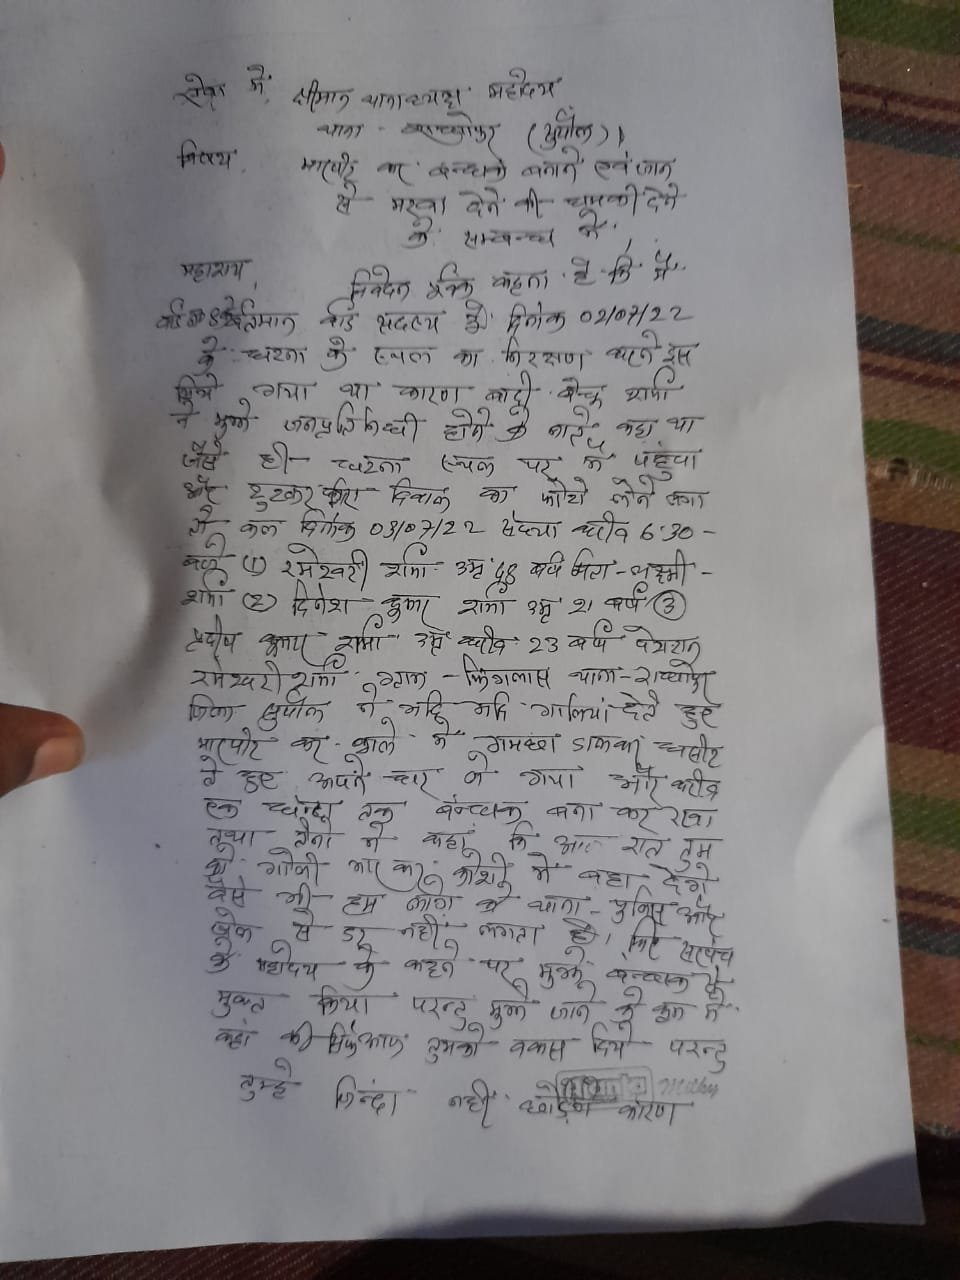 सेवा में, श्रीमान थानाध्यक्ष महोदय
थाना - (सुपौल)।
विषय मारपीट कर बन्धक बनाने एवं जान
से मरवा देने की धमकी देने
के सम्बन्ध में।
महाशय,
निवेदन पूर्वक कहना है कि मैं
वर्तमान वार्ड सदस्य हूँ दिनांक 02/07/22
के घटना के स्थल का निरक्षण करने इस
लिये गया था कारण वादी शर्मा
ने मुझे जनप्रतिनिधी होने के नाते कहा था
जैसे ही घटना स्थल पर मैं पहुंचा
और दिवाल का फोटो लेने लगा
तो कल दिनांक 03/07/22 संध्या करीब 6:30 -
बजे (1) रमेश्वरी शर्मा उम्र 48 वर्ष पिता - लक्ष्मी -
शर्मा (2) दिनेश कुमार शर्मा उम्र 21 वर्ष (3)
प्रदीप कुमार शर्मा उम्र करीब 23 वर्ष पेसरान
रमेश्वरी शर्मा ग्राम - थाना -
जिला सुपौल ने भद्दि भद्दि गालियां देते हुए
मारपीट कर गले में गमछा डालकर घसीट
ते हुए अपने घर ले गया और करीब
एक घन्टा तक बन्धक बना कर रखा
तथा तीनो ने कहा कि आज रात तुम
को गोली मार कर कोशी में बहा देंगे
वैसे भी हम लोग को थाना - पुलिस और
जेल से डर नहीं लगता है। फिर सरपंच
के महोदय के कहने पर मुझे बन्धक से
मुक्त किया परन्तु मुझे जाने के क्रम में
कहा की तुमको वकस दिये परन्तु
तुम्हे जिन्दा नहीं छोड़ेंगे कारण